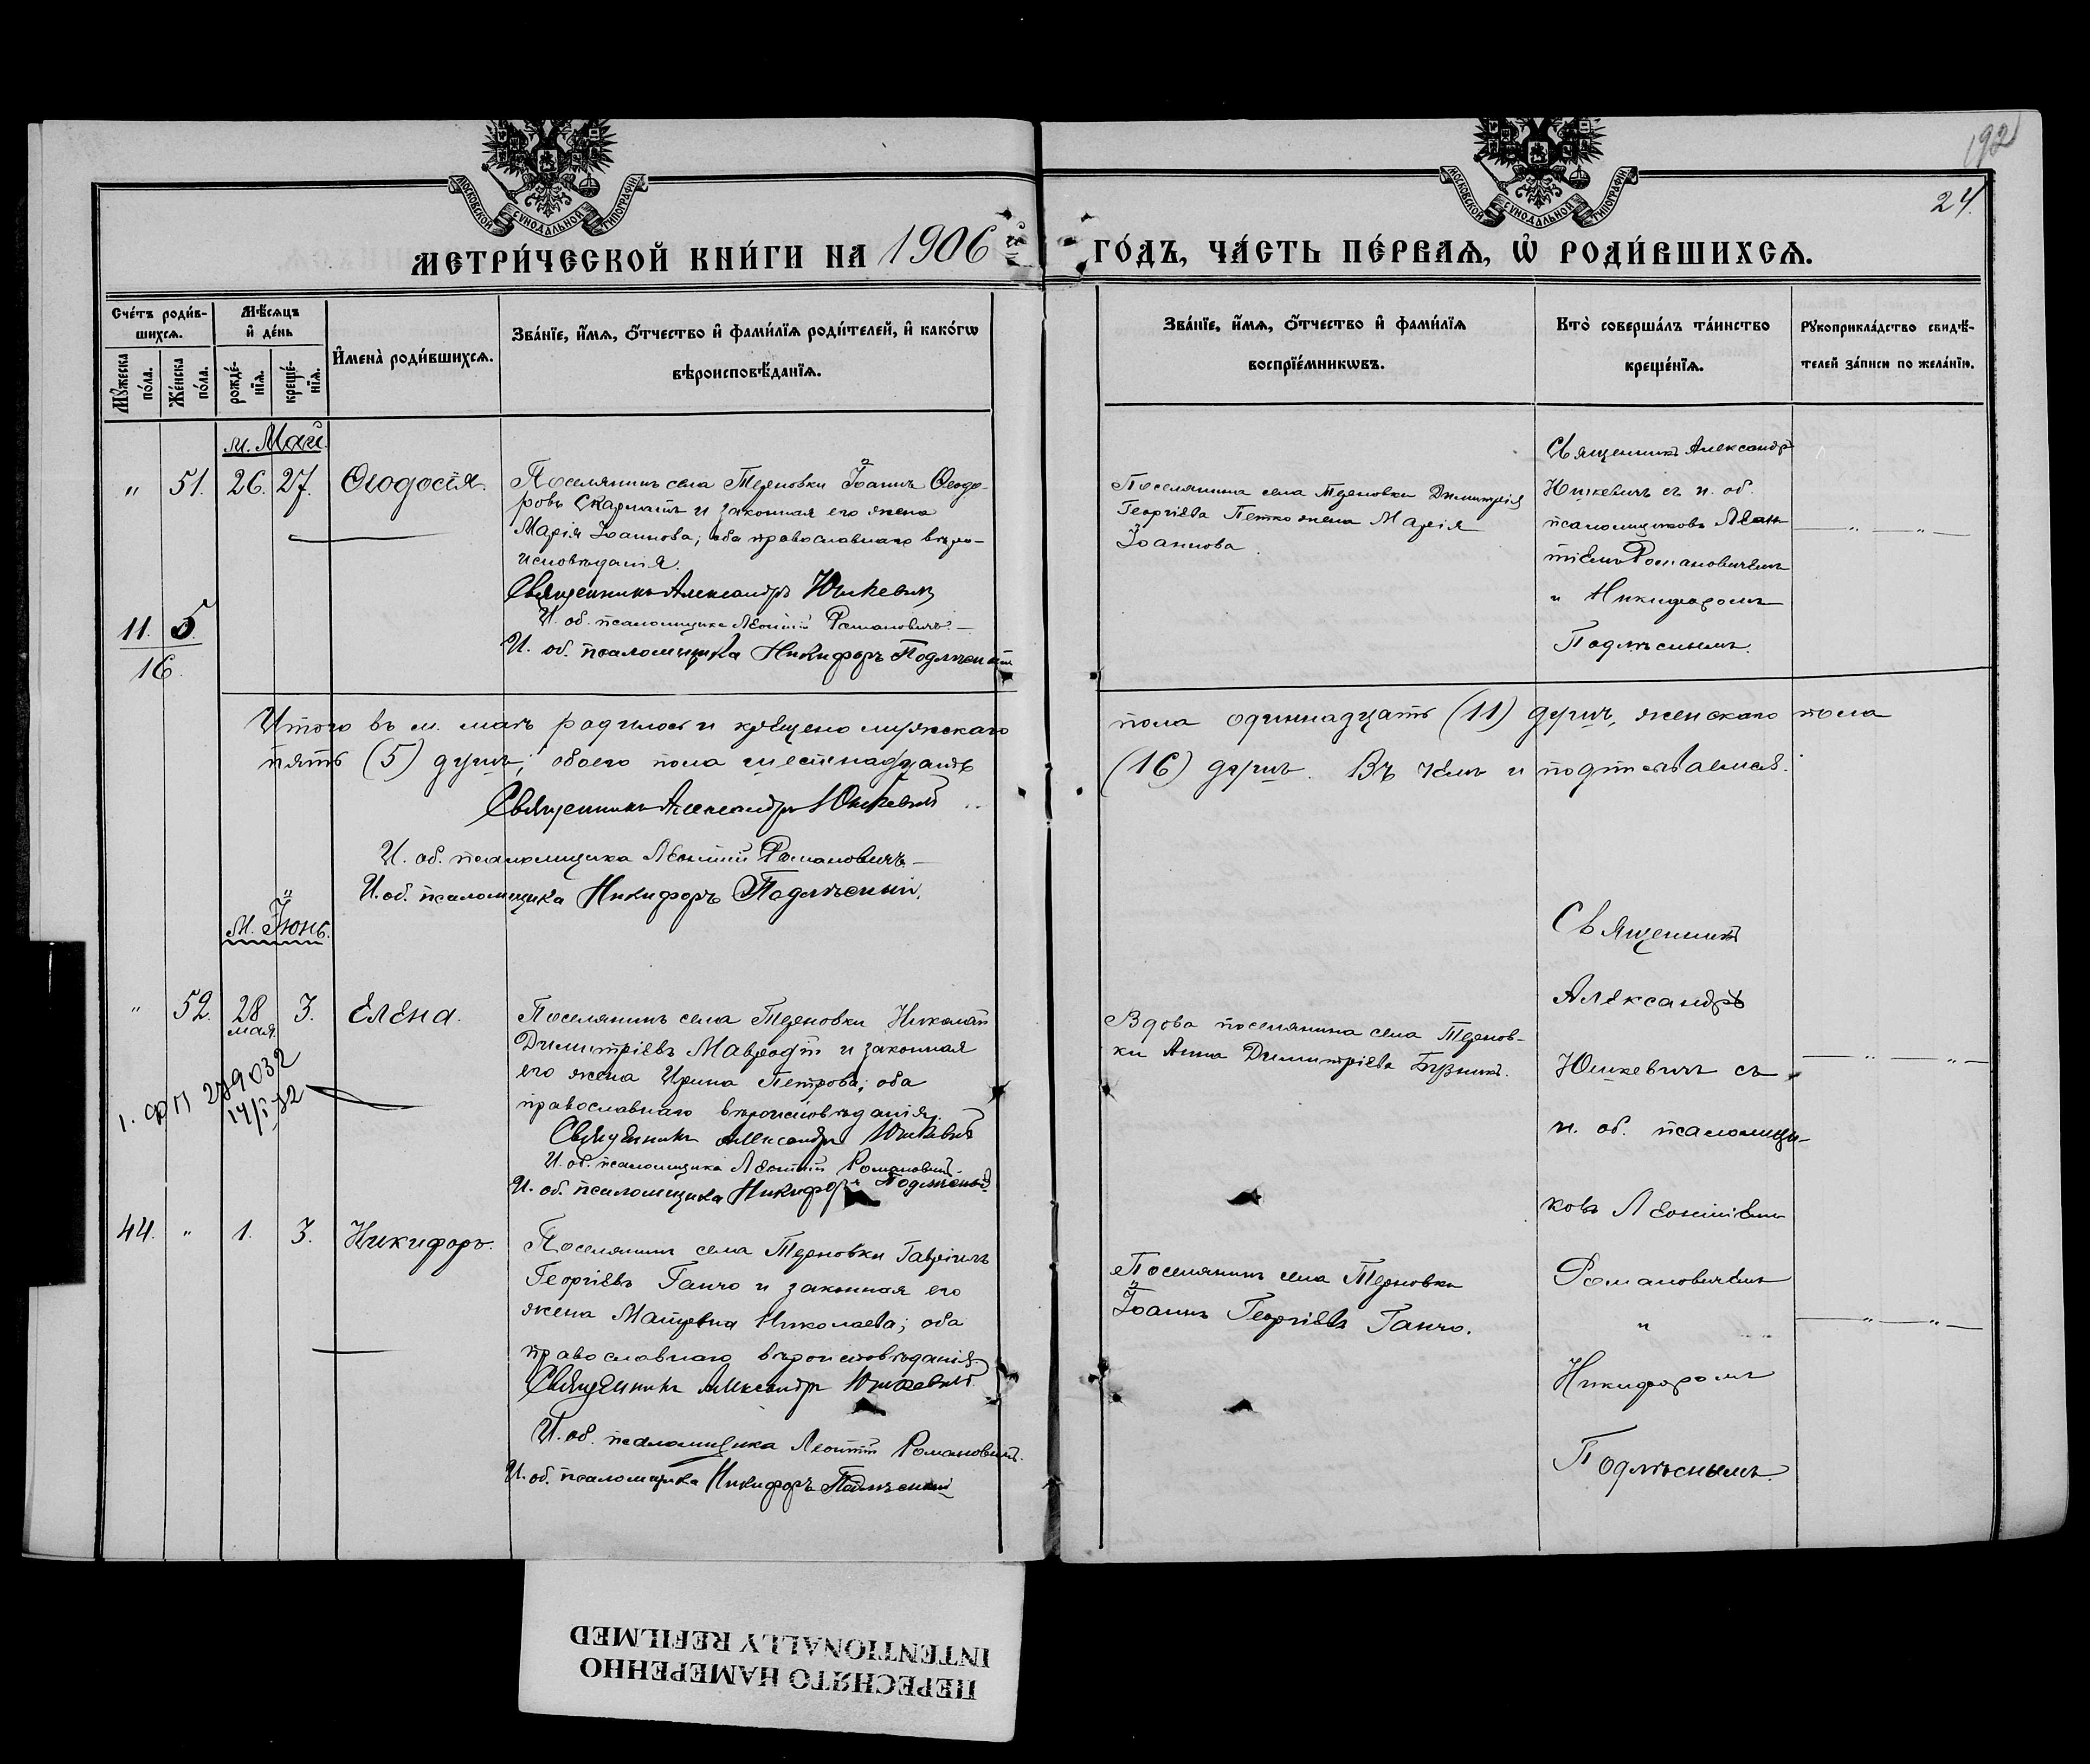 192
24.
МОСКОВСКОЙ СѴНОДАЛЬНОЙ ТИПОГРАФІИ
МОСКОВСКОЙ СѴНОДАЛЬНОЙ ТИПОГРАФІИ
МЕТРИ́ЧЕСКОЙ КНИ́ГИ НА 1906 й ГО́ДЪ, ЧА́СТЬ ПЕ́РВАѦ, Ѡ҆ РОДИ́ВШИХСѦ.
Сче́тъ роди́в-
шихсѧ.
Мꙋ́жеска по́ла.
Же́нска по́ла.
Мѣ́сѧцъ и҆ де́нь
рожде́-нїѧ.
креще́-нїѧ.
И҆мена̀ роди́вшихсѧ.
Зва́нїе, и҆́мѧ, ѻ҆́тчество и҆ фами́лїѧ роди́телей, и҆ како́гѡ
вѣроисповѣ́данїѧ.
Зва́нїе, и҆́мѧ, ѻ҆́тчество и҆ фами́лїѧ
воспрїе́мникѡвъ.
Кто̀ соверша́лъ та́инство
креще́нїѧ.
Рꙋкоприкла́дство свидѣ́-
телей за́писи по жела́нїю.
м. Май.
" 51. 26. 27. Ѳеодосія.
Поселянинъ села Терновки Іоаннъ Ѳеодо-
ровъ Скарлатъ и законная его жена
Марія Іоаннова; оба православнаго вѣро-
исповѣданія.
Священникъ Александръ Юшкевичъ
И. об. псаломщика Леонтій Романовичъ.
И. об. псаломщика Никифоръ Подлѣсный
Поселянина села Терновки Димитрія
Георгіева Петко жена Марія
Іоаннова.
Священникъ Александръ
Юшкевичъ съ и. об.
псаломщиковъ Леон
тіемъ Романовичемъ
и Никифоромъ
Подлѣснымъ.
11. 5.
16.
Итого въ м. маѣ родилось и крещено мужскаго пола одиннадцать (11) душъ, женскаго пола
пять (5) душъ; обоего пола шестнадцать (16) душъ. Въ чемъ и подписываемся.
Священникъ Александръ Юшкевичъ
И. об. псаломщика Леонтій Романовичъ
И. об. псаломщика Никифоръ Подлѣсный.
м. Іюнь.
" 52. 28 мая 3. Елена.
Поселянинъ села Терновки Николай
Димитріевъ Мавродій и законная
его жена Ирина Петрова; оба
православнаго вѣроисповѣданія.
Священникъ Александръ Юшкевичъ
И. об. псаломщика Леонтій Романовичъ
И. об. псаломщика Никифоръ Подлѣсный
Вдова поселянина села Тернов-
ки Анна Димитріева Бузникъ.
1. ФП 279032
14/I 32
44. " 1. 3. Никифоръ.
Поселянинъ села Терновки Гавріилъ
Георгіевъ Ганчо и законная его
жена Николаева; оба
православнаго вѣроисповѣданія.
Священникъ Александръ Юшкевичъ.
И. об. псаломщика Леонтій Романовичъ.
И. об. псаломщика Никифоръ Подлѣсный
Поселянинъ села Терновки
Іоаннъ Георгіевъ Ганчо.
Священникъ
Александръ
Юшкевичъ съ
и. об. псаломщи-
ковъ Леонтіемъ
Романовичемъ
и
Никифоромъ
Подлѣснымъ.
ПЕРЕСНЯТО НАМЕРЕННО
INTENTIONALLY REFILMED